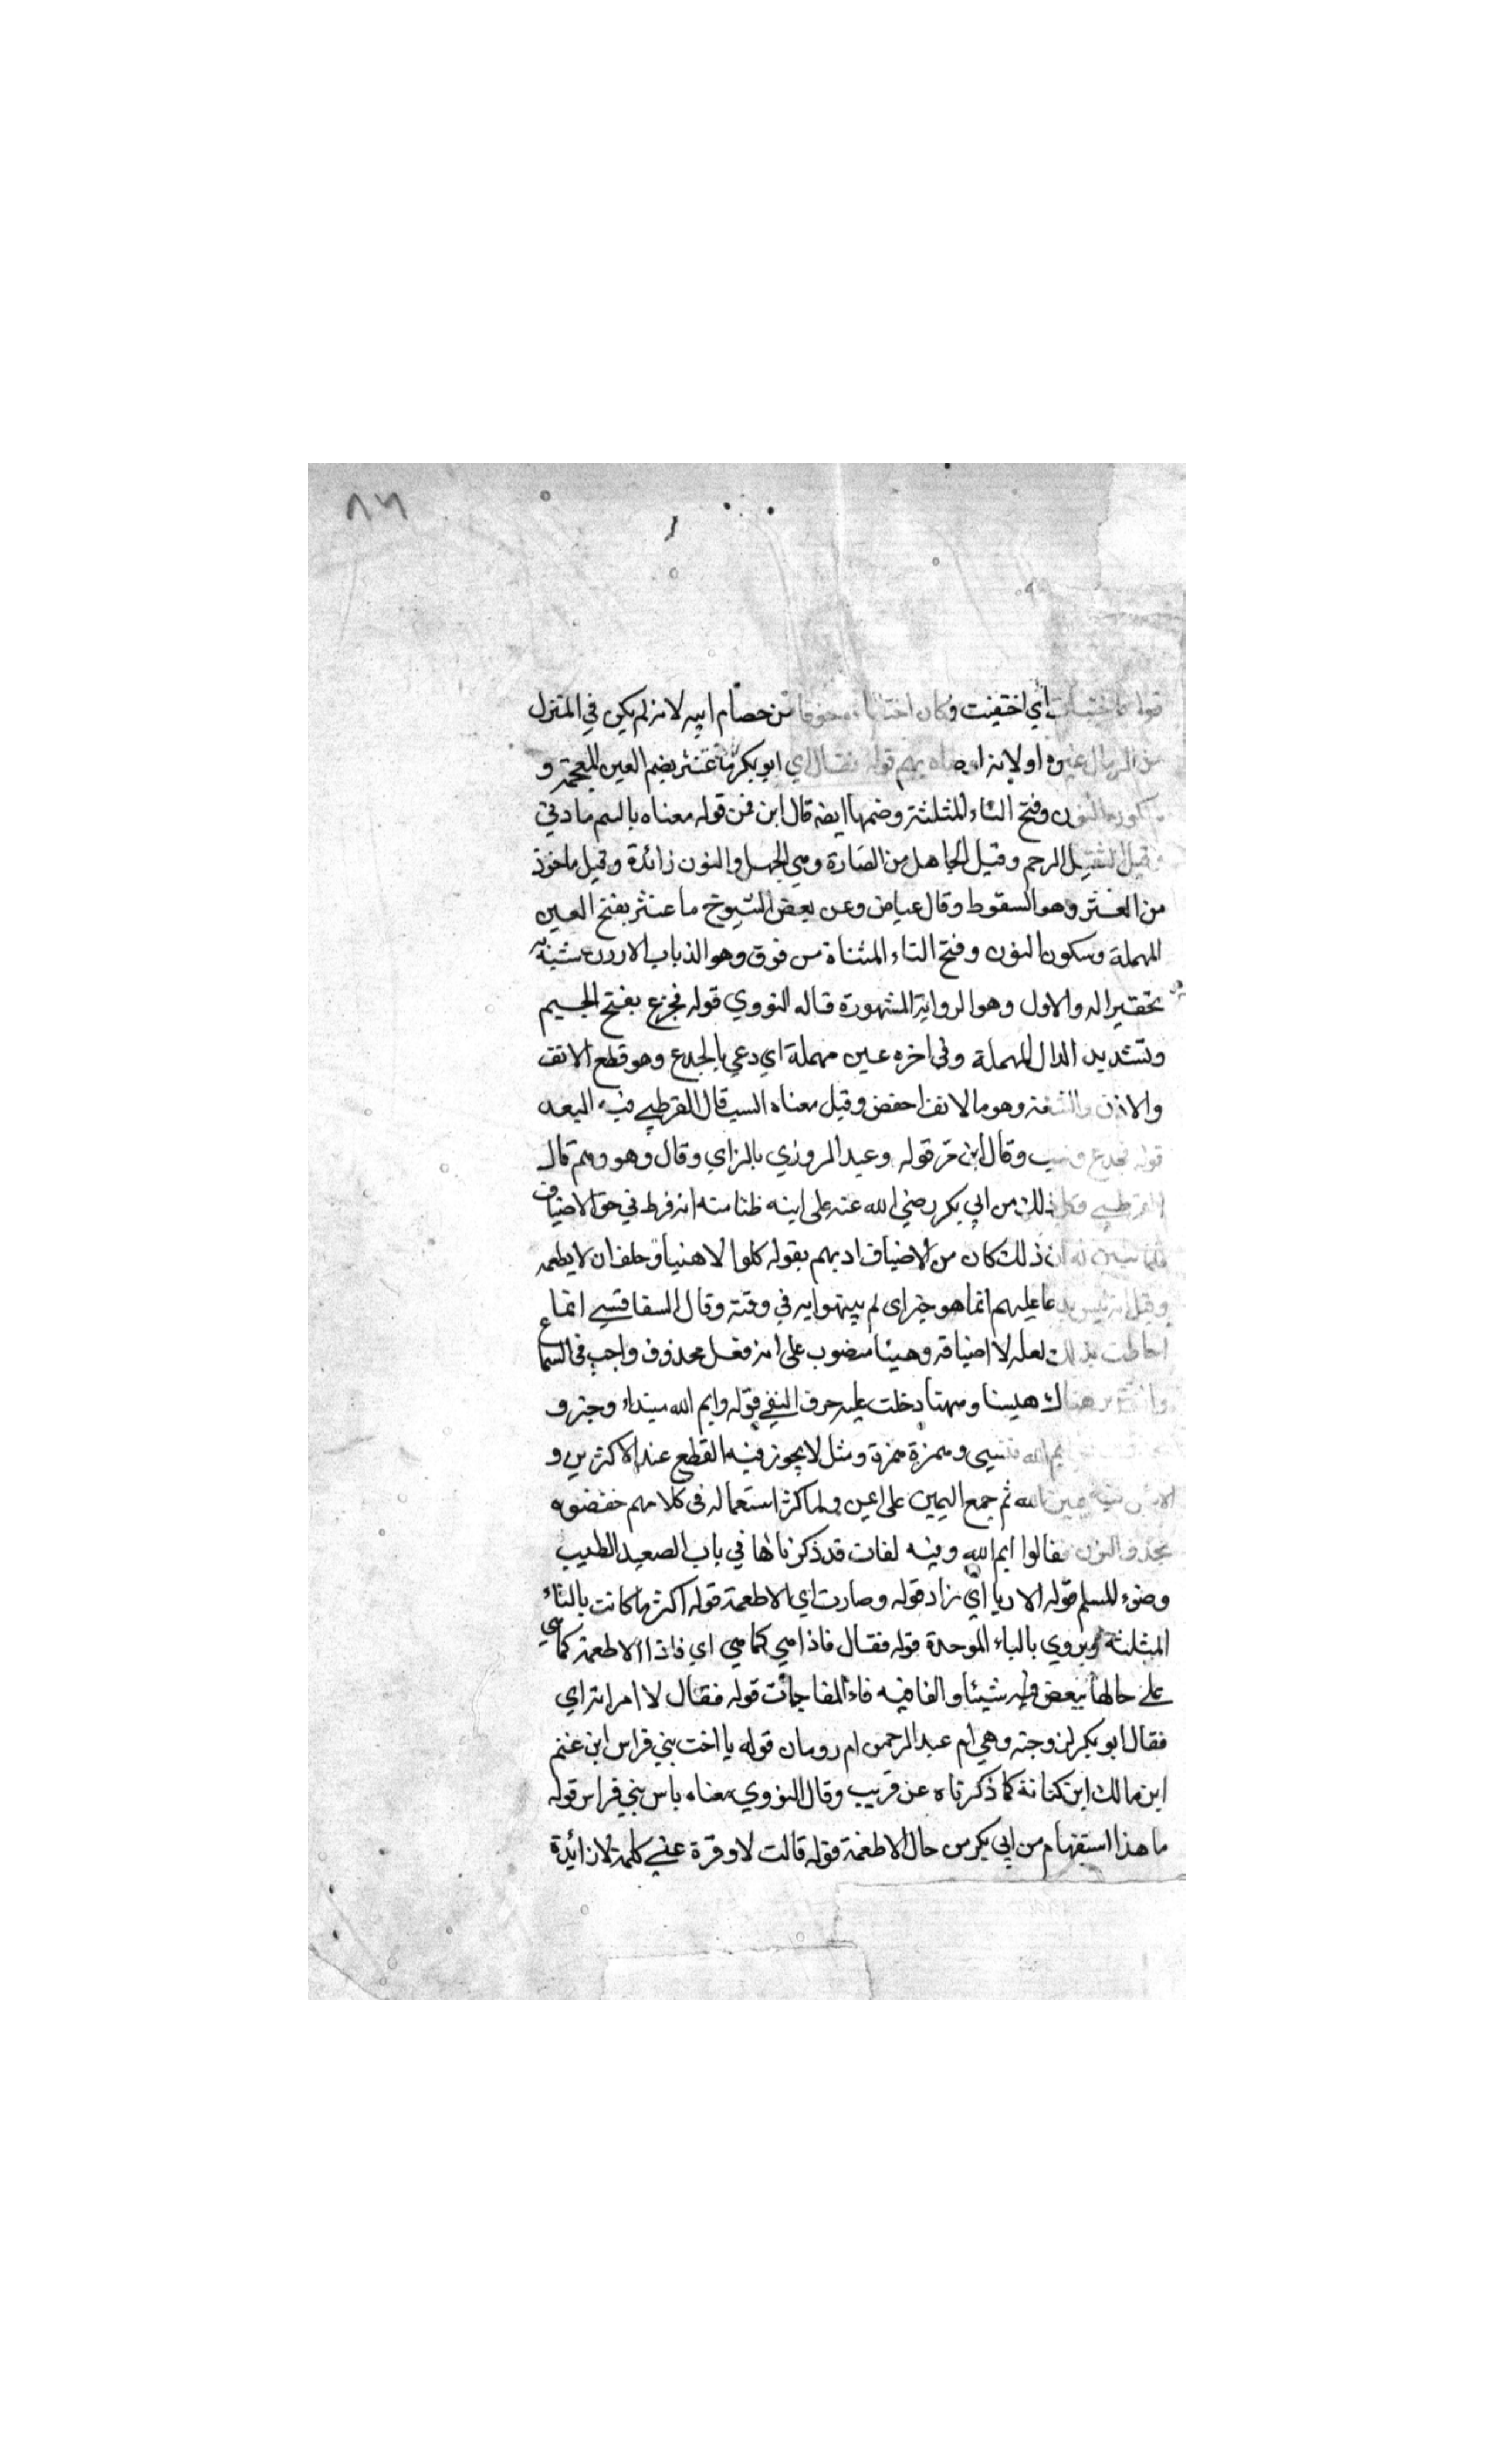 ٨٦
قوله فاختبأت أي اختفيت وكان اختباؤه خوفا من خصام ابيه لانه لم يكن في المنزل
من الرجال غيره او لانه اوصاه بهم قوله فقال اي ابو بكر يا غنثر بضم العين المعجمة و
سكون النون وفتح الثاء المثلثة وضمها ايضا قال ابن قوله معناه
وقيل الثقيل الرحم وقيل الجاهل من الغثارة وهي الجهل والنون زائدة وقيل ماخوذ
من الغثر وهو السقوط وقال عياض وعن بعض الشيوخ يا عنتر بفتح العين
المهملة وسكون النون وفتح التاء المثناة من فوق وهو الذباب الازرق شبهه به
تحقيرا له والاول هو الرواية المشهورة قاله النووي قوله فجدع بفتح الجيم
وتشديد الدال المهملة وفي اخره عين مهملة اي دعي بالجدع وهو قطع الانف
والاذن والشفة وهو بالانف اخص وقيل معناه السب قال القرطبي فيه البعد
قوله فجدع وسب وقال ابن قرقوله وعند المروزي بالزاي وقال وهو وهم قال
القرطبي وكل ذلك من ابي بكر رضي الله عنه على ابنه ظنا منه انه فرط في حق الاضياف
فلما تبين له ان ذلك كان من الاضياف ادبهم بقوله كلوا لا هنيأ وحلف ان لا يطعمه
وقيل انه ليس بدعاء عليهم انما هو خبر اي لم يتهنوا به في وقته وقال السفاقسي انما
خاطب بذلك لعله لا اضيافه وهنيئا منصوب على انه فعل محذوف واجب في السماع
هناك هنيئا ومهنأ دخلت عليه حرف النفي قوله وايم الله مبتداء وخبره
ايم الله قسمي وهمزة همزة وصل لا يجوز فيه القطع عند الاكثرين و
الاصل فيه يمين الله ثم جمع اليمين على ايمن ولما كثر استعماله في كلامهم خففوه
بحذف النون فقالوا ايم الله وفيه لغات قد ذكرناها في باب الصعيد الطيب
وضوء المسلم قوله الا ربا اي زاد قوله وصارت اي الاطعمة قوله اكثر مما كانت بالثاء
المثلثة ويروى بالباء الموحدة قوله فقال فاذا هي كما هي اي فاذا الاطعمة كما هي
على حالها شيئا والفا فيه فاء المفاجأت قوله فقال لامراته اي
فقال ابو بكر لزوجته وهي ام عبد الرحمن ام رومان قوله يا اخت بني فراس ابن غنم
ابن مالك ابن كنانة كما ذكرناه عن قريب وقال النووي معناه يا من بني فراس قوله
ما هذا استفهام من ابي بكر من حال الاطعمة قوله قالت لا وقرة عيني كلمة لا زائدة